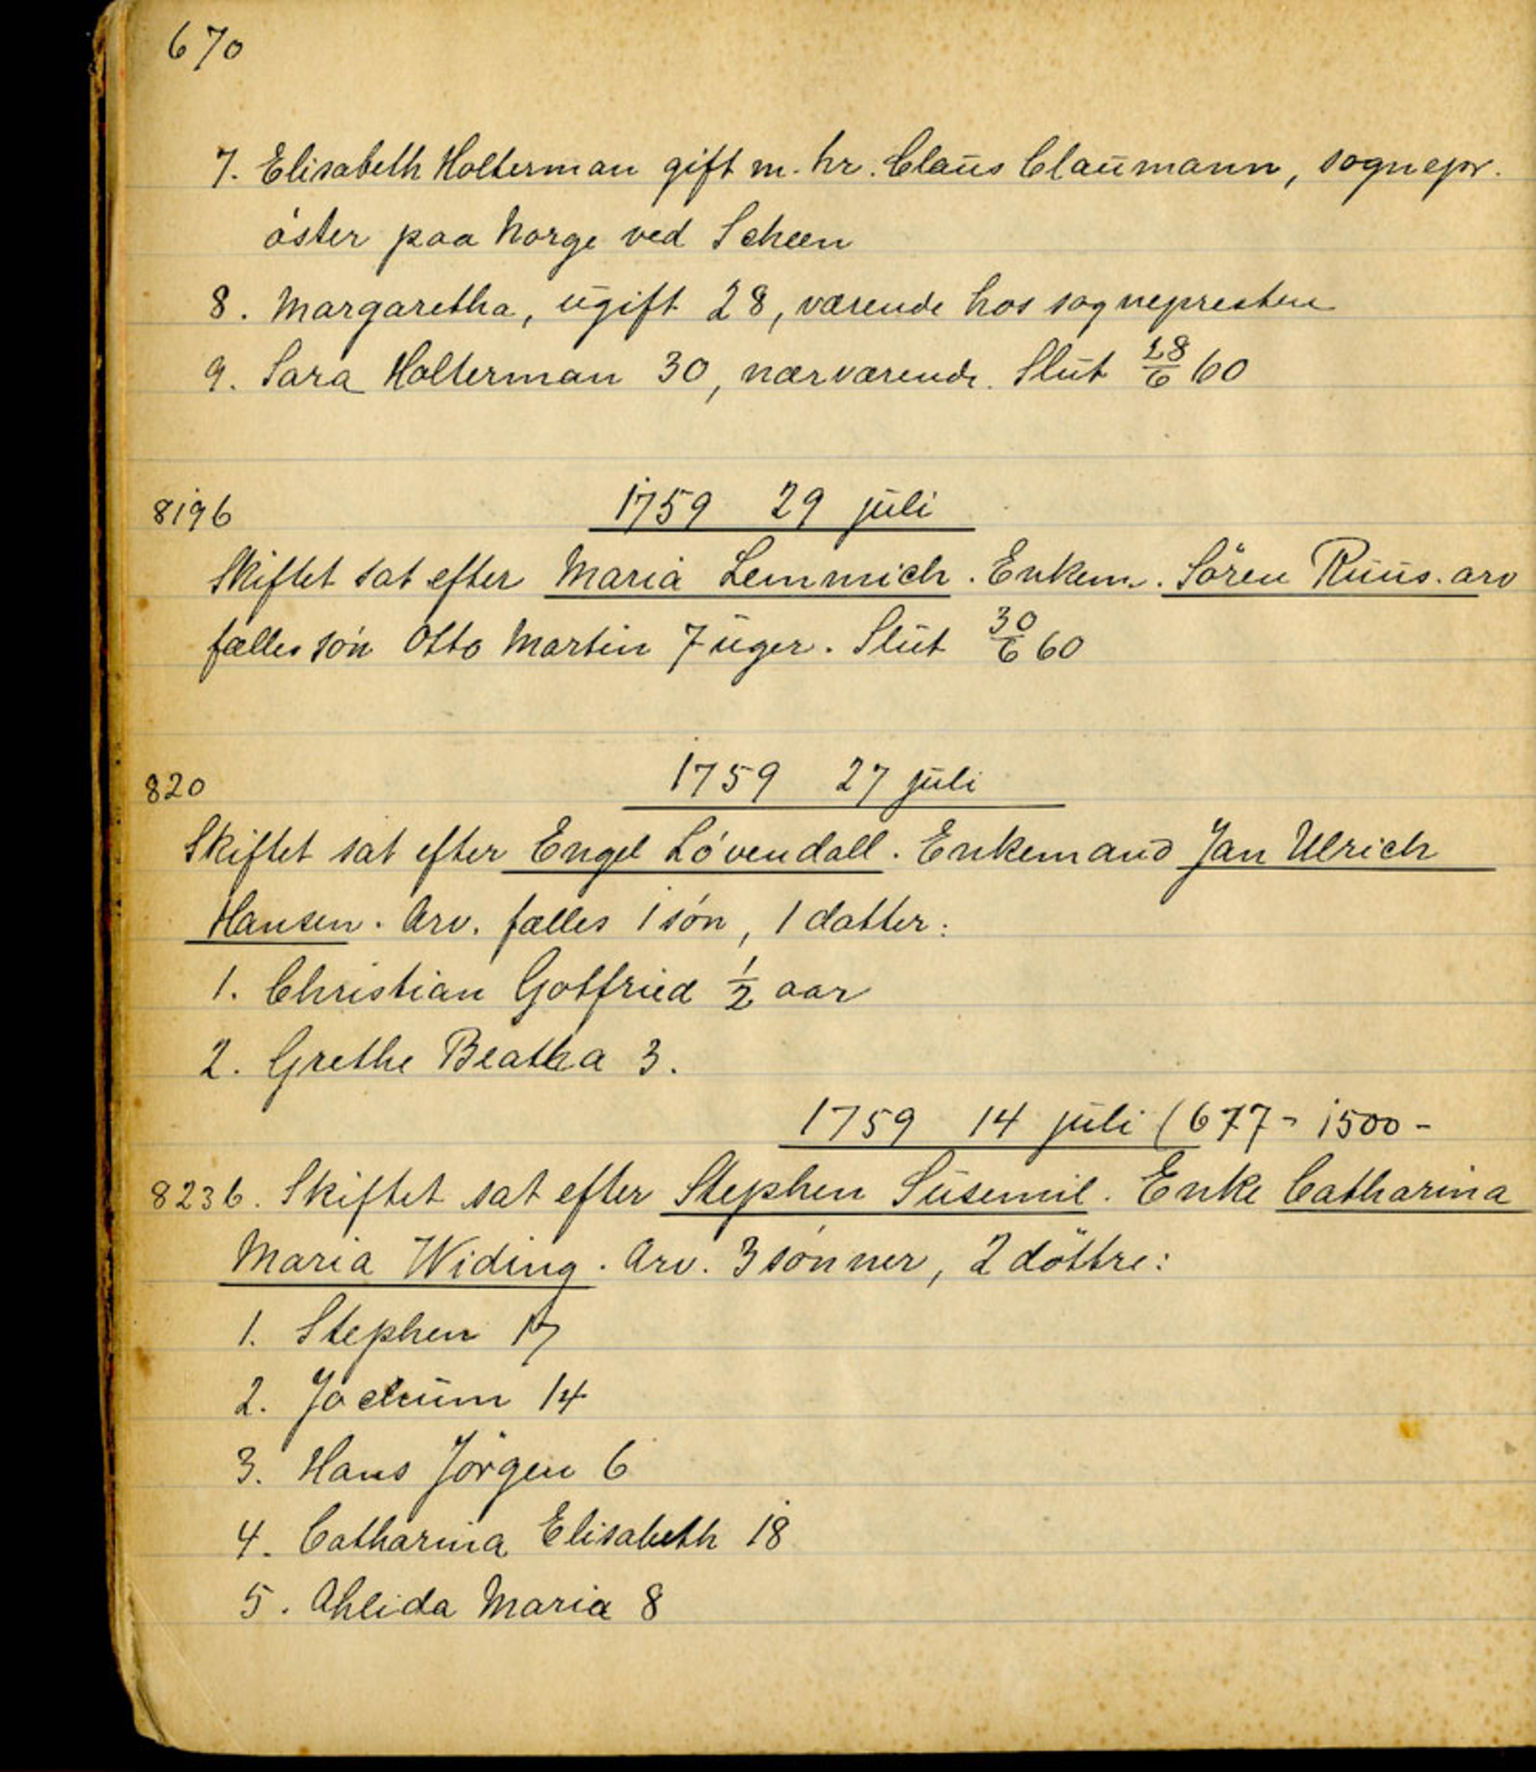 670
7. Elisabeth Holterman gift m. hr. Claus Claumann, sognepr.
öster paa Norge ved Scheen
8. Margaretha, ugift 28, værende hos sognepresten
9. Sara Holterman 30, nærværende. Slut 28/6 60
8196 1759 29 juli
Skiftet sat efter Maria Lemmich. Enkem. Sören Ruus. arv
fælles són Otto Martin 7 uger. Slut 30/6 60
820 1759 27 juli
Skiftet sat efter Engel Lóvendall. Enkemand Jan Ulrich
Hansen. Arv. fælles 1 són, 1 datter:
1. Christian Gotfried 1/2 aar
2. Grethe Beatha 3.
1759 14 juli (677 - 1500 -
8236. Skiftet sat efter Stephen Susemil. Enke Catharina
Maria Widing. Arv. 3 sónner, 2 döttre:
1. Stephen 17
2. Jochum 14
3. Hans Jörgen 6
4. Catharina Elisabeth 18
5. Ahlida Maria 8